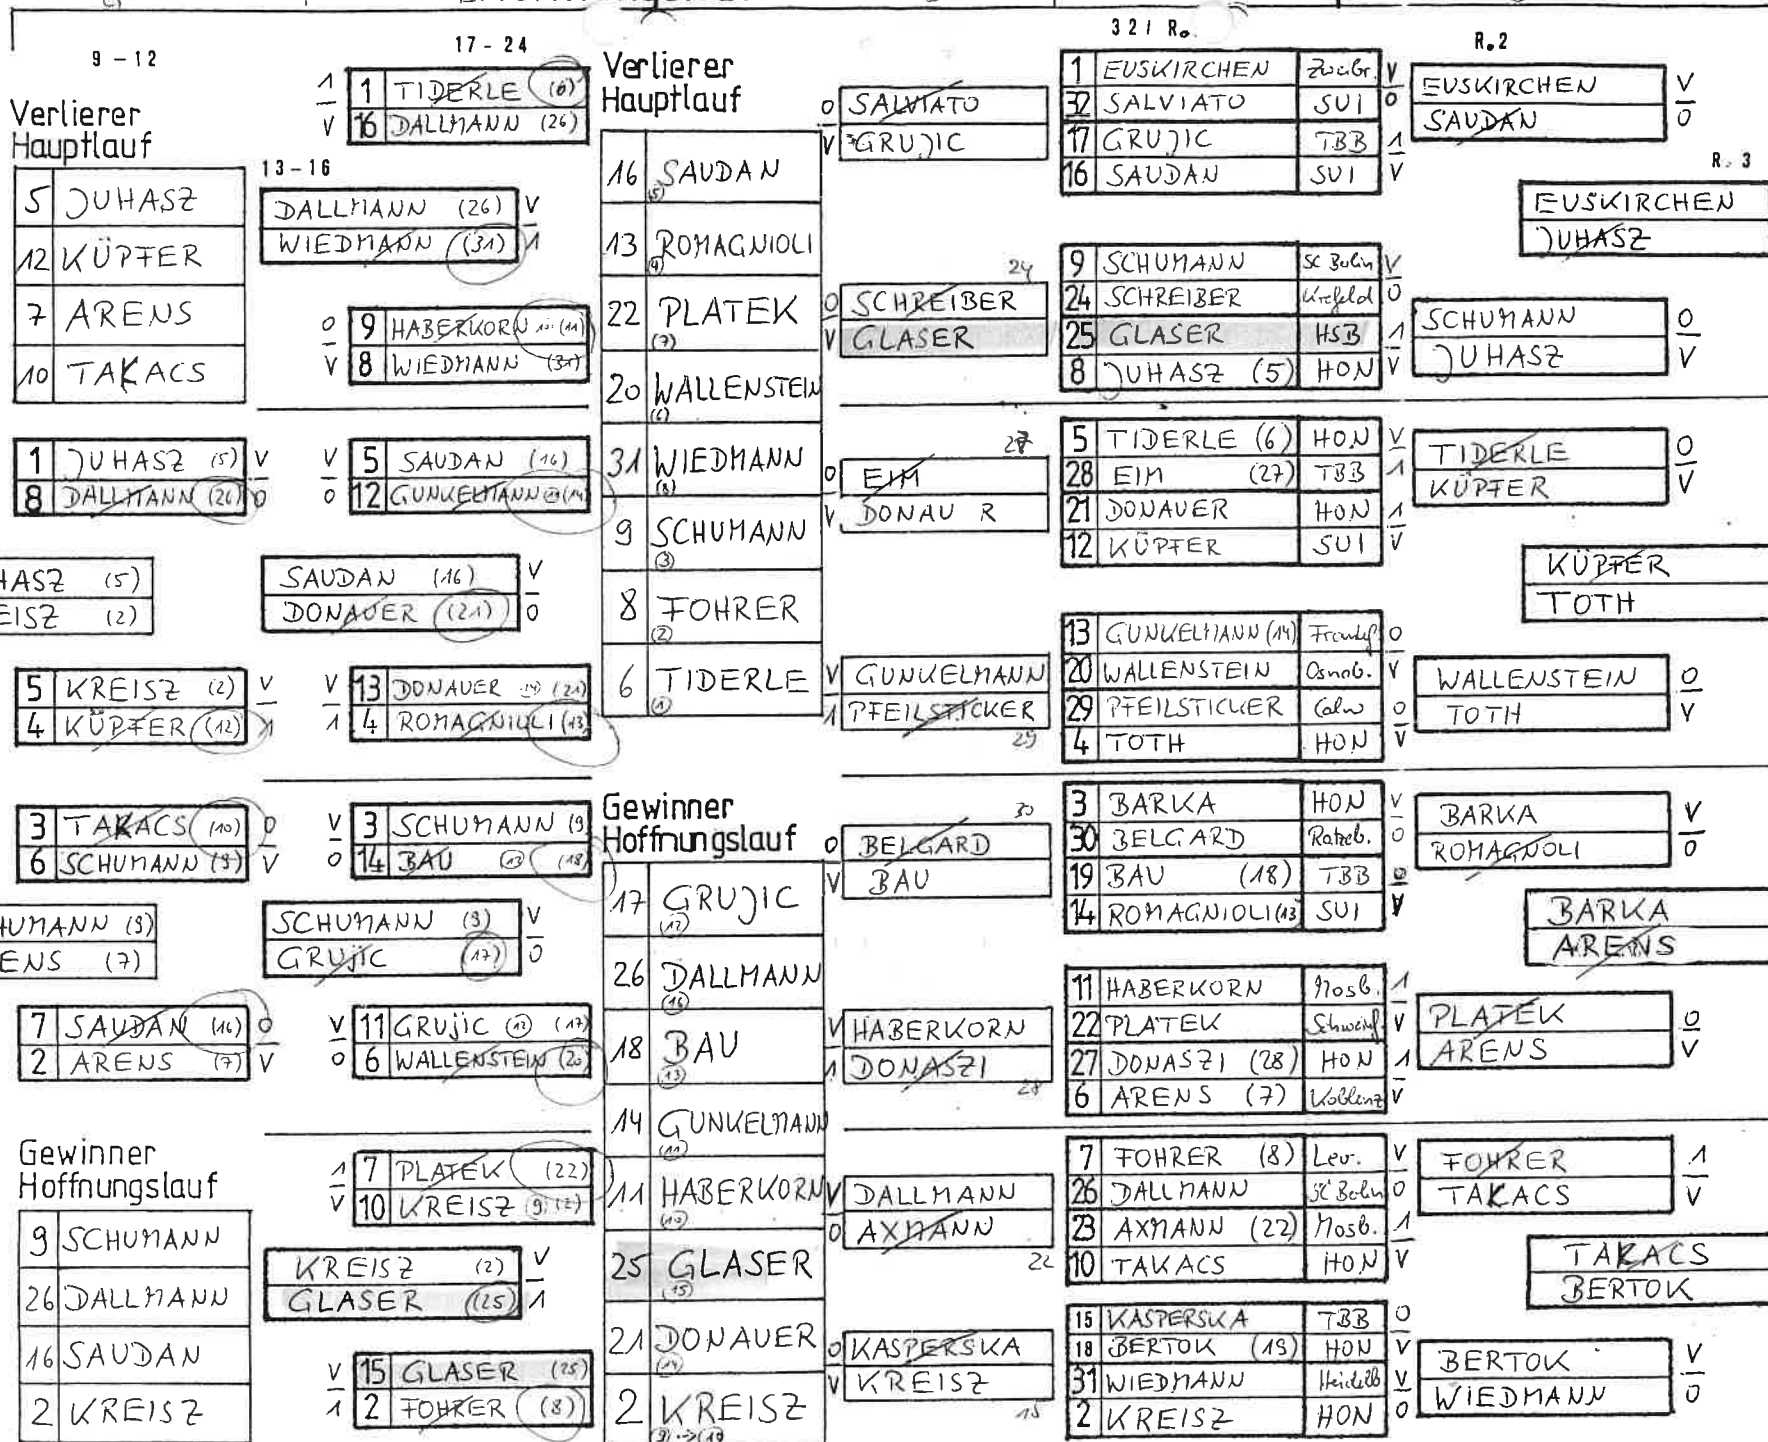 9 - 12
Verlierer
Hauptlauf
5 JUHASZ
12 KÜPFER
7 ARENS
10 TAKACS
1 JUHASZ (5) V
8 DALLMANN (26) 0
HASZ (5)
EISZ (2)
5 KREISZ (2) V
4 KÜPFER (12) 1
3 TAKACS (10) 0
6 SCHUMANN (9) V
HUMANN (9)
ENS (7)
7 SAUDAN (16) 0
2 ARENS (7) V
Gewinner
Hoffnungslauf
9 SCHUMANN
26 DALLMANN
16 SAUDAN
2 KREISZ
17 - 24
1 1 TIDERLE (6)
V 16 DALLMANN (26)
13 - 16
DALLMANN (26) V
WIEDMANN (31) 1
0 9 HABERKORN (11)
V 8 WIEDMANN (31)
V 5 SAUDAN (16)
0 12 GUNKELMANN (14)
SAUDAN (16) V
DONAUER (21) 0
V 13 DONAUER (21)
1 4 ROMAGNIOLI (13)
V 3 SCHUMANN (9)
0 14 BAU (13) (18)
SCHUMANN (9) V
GRUJIC (17) 0
V 11 GRUJIC (12) (17)
0 6 WALLENSTEIN (20)
1 7 PLATEK (22)
V 10 KREISZ (9) (2)
KREISZ (2) V
GLASER (25) 1
V 15 GLASER (25)
1 2 FOHRER (8)
Verlierer
Hauptlauf
16 SAUDAN (5)
13 ROMAGNIOLI (4)
22 PLATEK (7)
20 WALLENSTEIN (6)
31 WIEDMANN (8)
9 SCHUMANN (3)
8 FOHRER (2)
6 TIDERLE (1)
Gewinner
Hoffnungslauf
17 GRUJIC (12)
26 DALLMANN (16)
18 BAU (13)
14 GUNKELMANN (11)
11 HABERKORN (10)
25 GLASER (15)
21 DONAUER (14)
2 KREISZ
0 SALVIATO
V GRUJIC
24
0 SCHREIBER
V GLASER
27
0 EIM
V DONAU R
V GUNKELMANN
1 PFEILSTICKER
29
30
0 BELGARD
V BAU
V HABERKORN
1 DONASZI
28
V DALLMANN
0 AXMANN
22
0 KASPERSKA
V KREISZ
15
32 / R.
1 EUSKIRCHEN Zweibr. V
32 SALVIATO SUI 0
17 GRUJIC TBB 1
16 SAUDAN SUI V
9 SCHUMANN SC Berlin V
24 SCHREIBER Krefeld 0
25 GLASER HSB 1
8 JUHASZ (5) HON V
5 TIDERLE (6) HON V
28 EIM (27) TBB 1
21 DONAUER HON 1
12 KÜPFER SUI V
13 GUNKELMANN (14) Frankf. 0
20 WALLENSTEIN Osnab. V
29 PFEILSTICKER Calw 0
4 TOTH HON V
3 BARKA HON V
30 BELGARD Ratzeb. 0
19 BAU (18) TBB 0
14 ROMAGNIOLI (13) SUI V
11 HABERKORN Mosb. 1
22 PLATEK Schweinf. V
27 DONASZI (28) HON 1
6 ARENS (7) Koblenz V
7 FOHRER (8) Lev. V
26 DALLMANN SC Berlin 0
23 AXMANN (22) Mosb. 1
10 TAKACS HON V
15 KASPERSKA TBB 0
18 BERTOK (19) HON V
31 WIEDMANN Heidelb V
2 KREISZ HON 0
R.2
EUSKIRCHEN V
SAUDAN 0
SCHUMANN 0
JUHASZ V
TIDERLE 0
KÜPFER V
WALLENSTEIN 0
TOTH V
BARKA V
ROMAGNOLI 0
PLATEK 0
ARENS V
FOHRER 1
TAKACS V
BERTOK V
WIEDMANN 0
R. 3
EUSKIRCHEN
JUHASZ
KÜPFER
TOTH
BARKA
ARENS
TAKACS
BERTOK